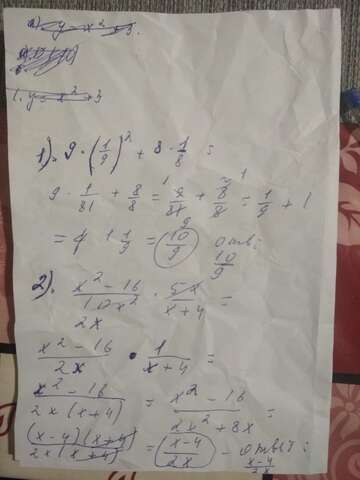 a) y = x² + 3.
1. y = x² + 3
1). 9 · (1/9)² + 8 · 1/8 =
9 · 1/81 + 8/8 = 9/81 + 8/8 = 1/9 + 1
= 1 1/9 = 10/9 ответ 10/9
2). x² - 16 / 10x² · 5x / x + 4 =
2x
x² - 16 / 2x · 1 / x + 4 =
x² - 16 / 2x(x+4) = x² - 16 / 2x² + 8x =
(x-4)(x+4) / 2x(x+4) = x-4 / 2x - ответ: x-4 / 2x